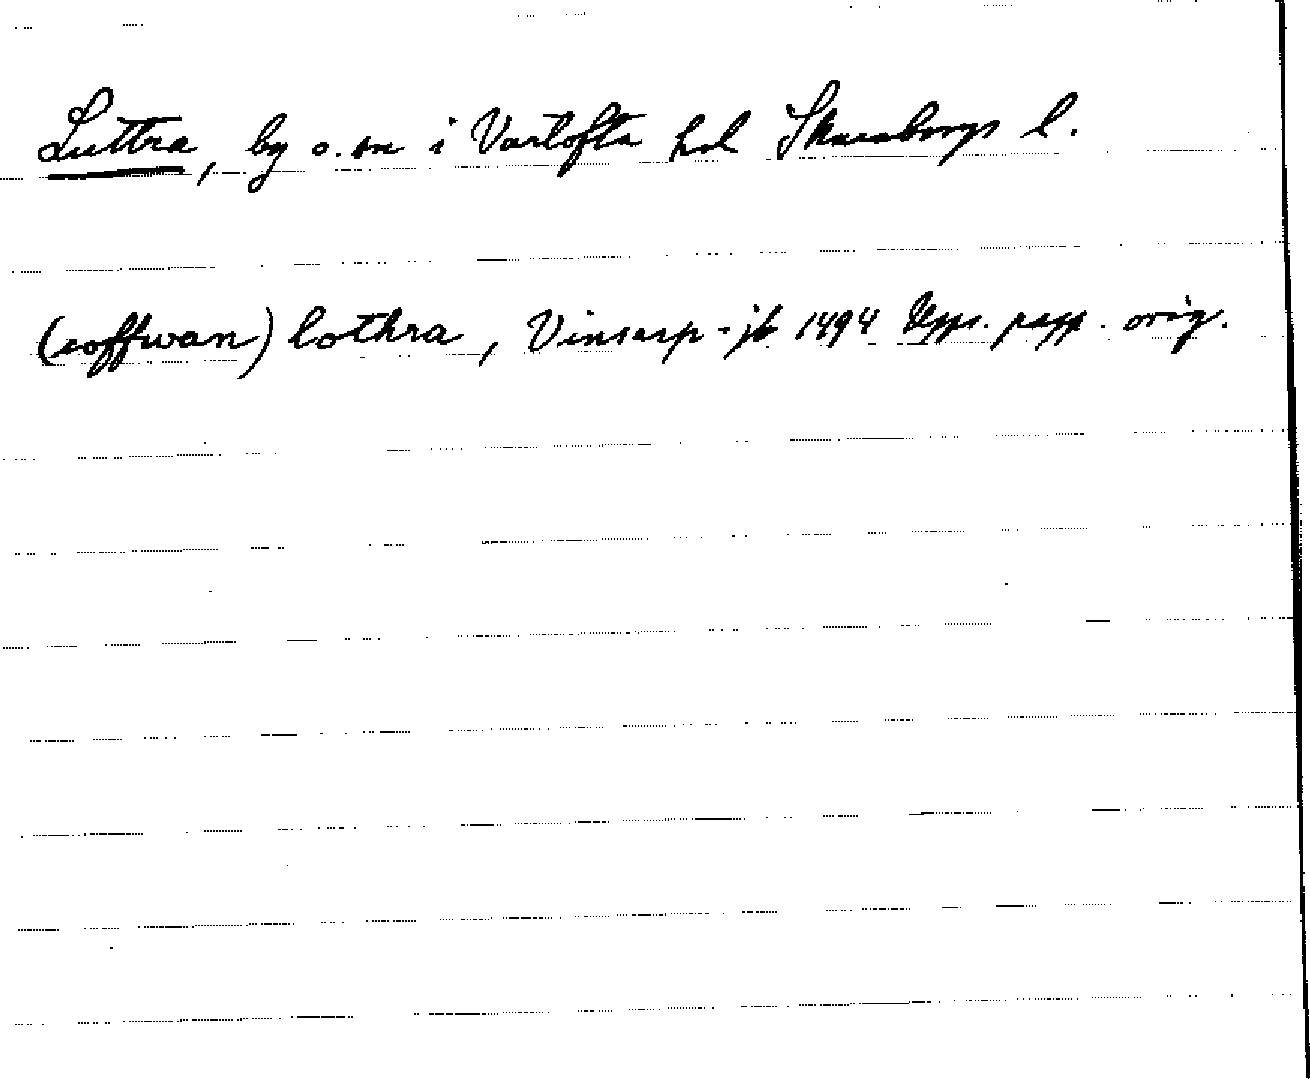 Luttra, by o. sn i Vartofta hd Skaraborgs l.
(soffwan) lothra, Vinsarp-jb 1494 Upps. papp. orig.